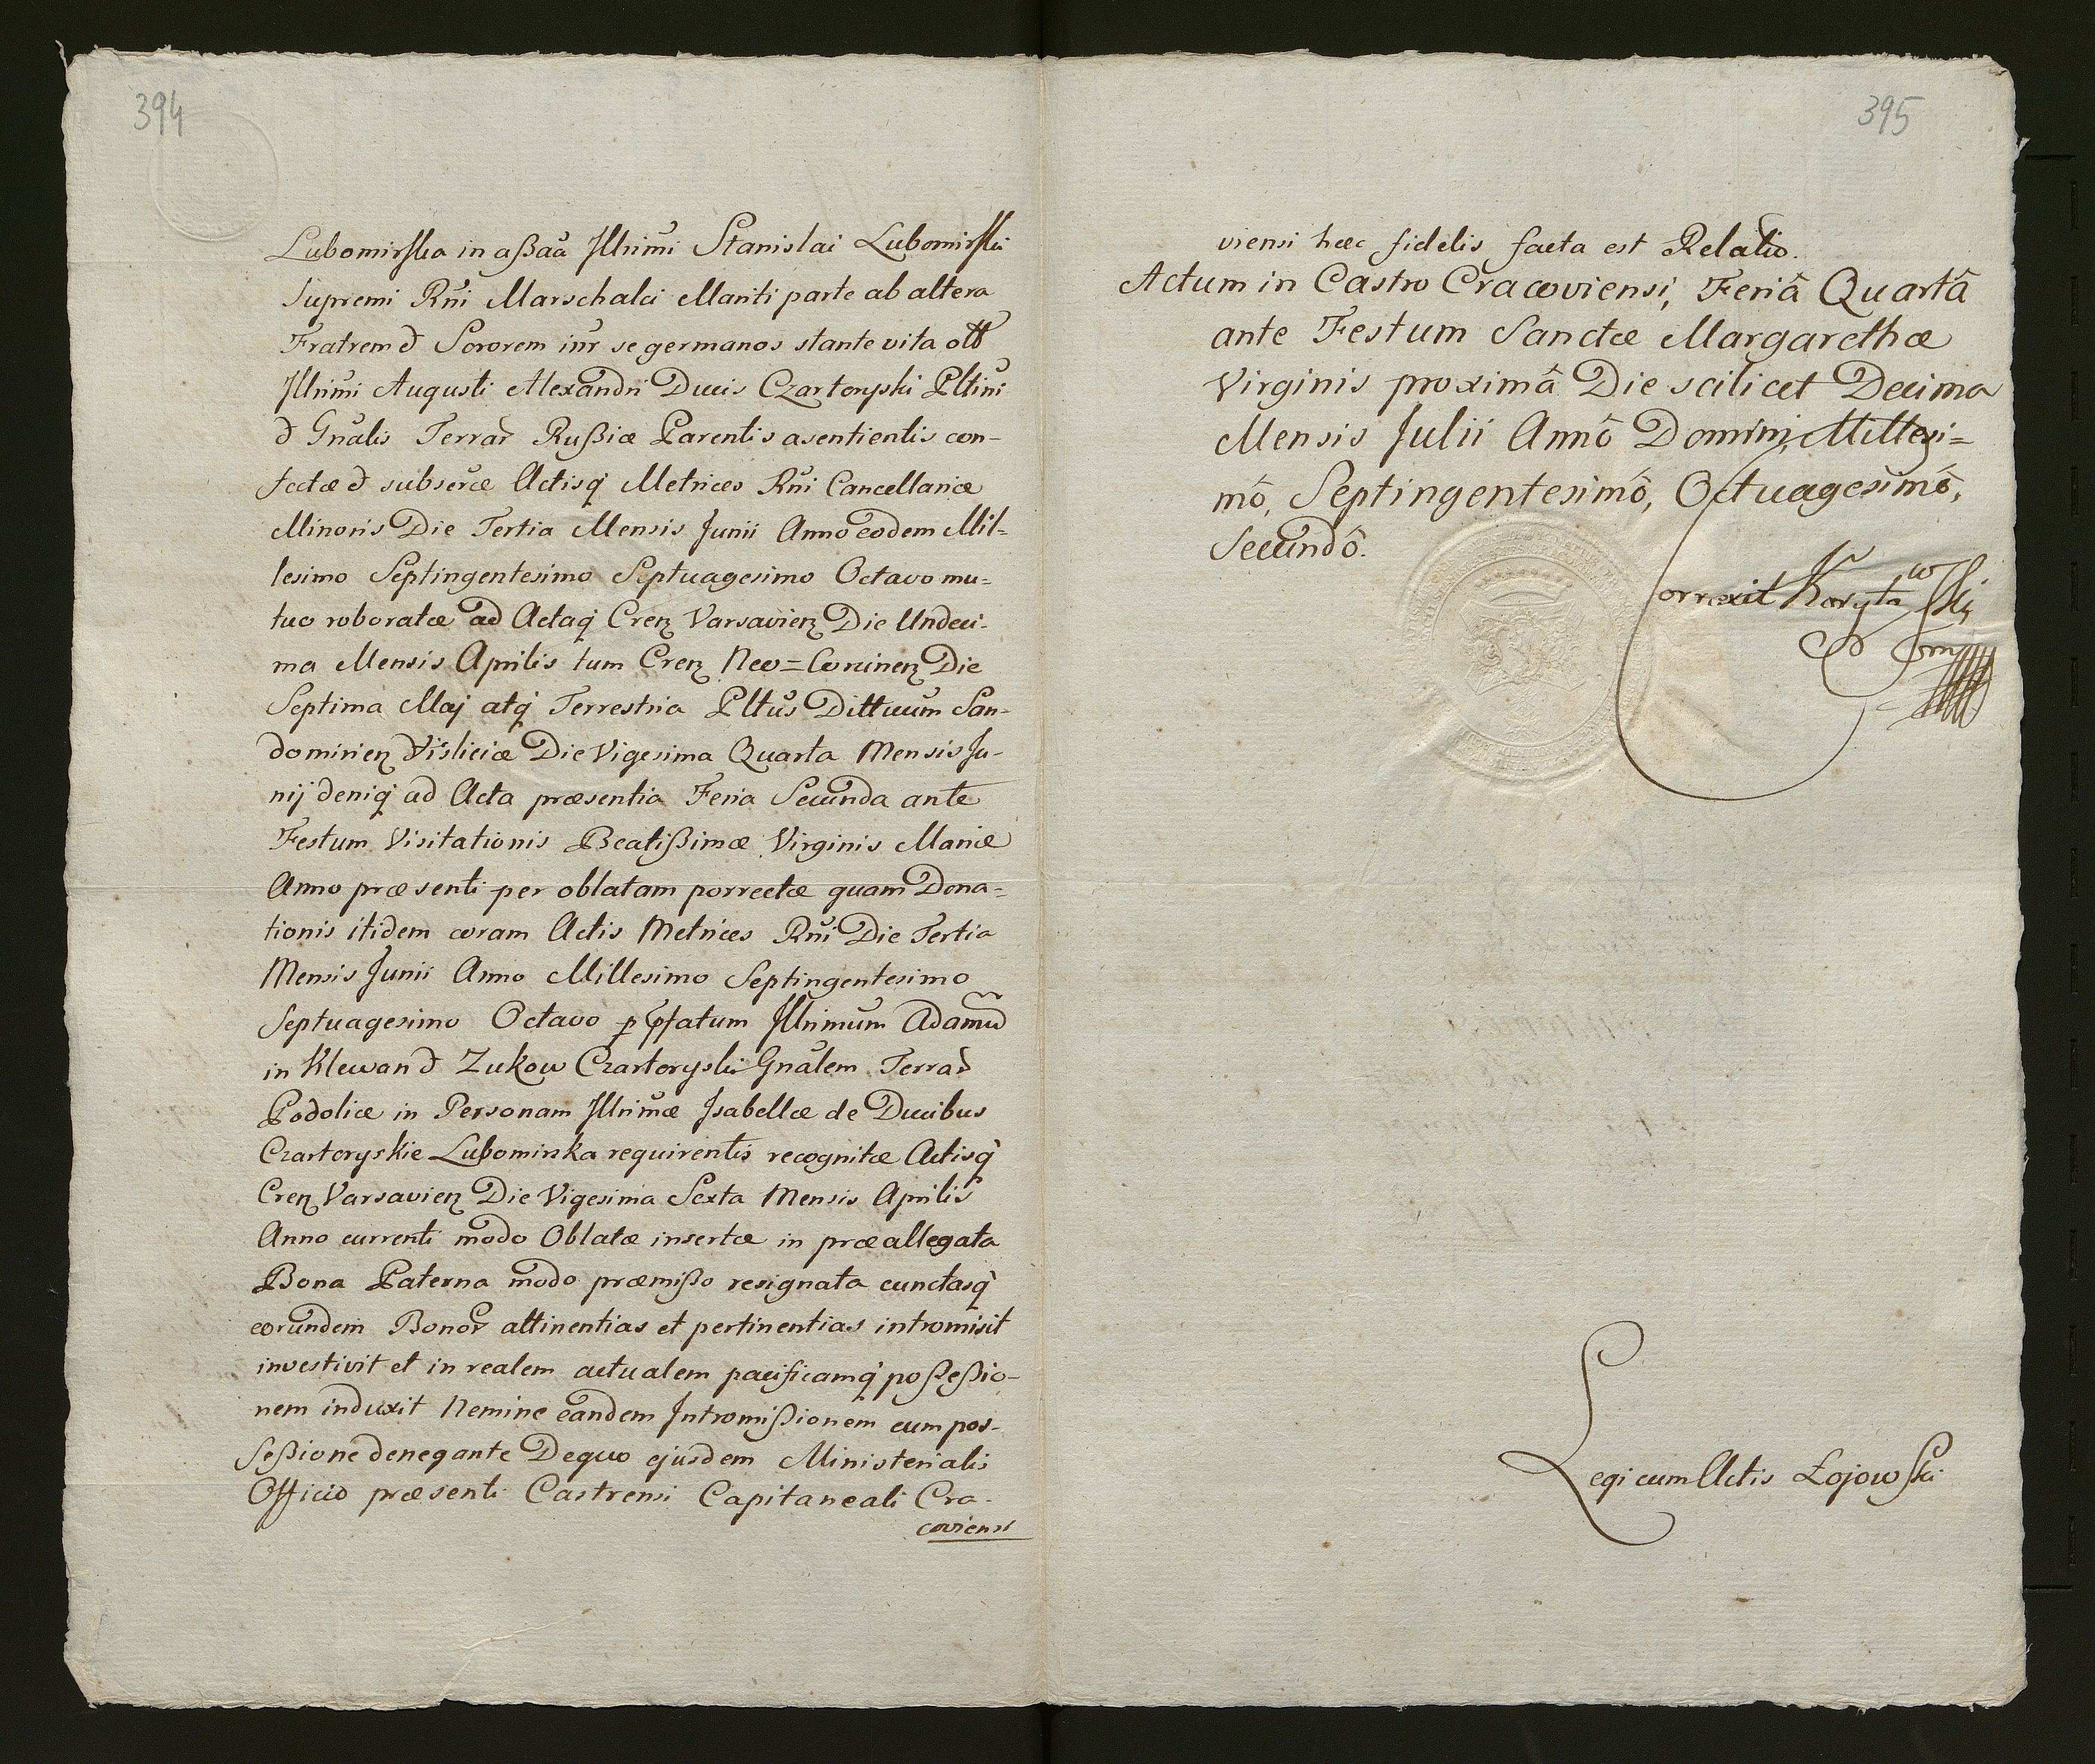 394
Lubomirska in assãa Jllrimi Stanislai Lubomirski
Supremi Rñi Marschalci Mariti parte ab altera
Fratrem & Sororem inr se germanos stante vita olt
Jllrimi Augusti Alexandri Ducis Czartoryski Pltini
& Gñalis Terrar Rußiæ Parentis asentientis con-
fectæ & subscræ Actisq Metrices Rñi Cancellariæ
Minoris Die Tertia Mensis Junii Anno eodem Mil-
lesimo Septingentesimo Septuagesimo Octavo mu=
tuo roboratæ ad Actaq Cren Varsavien Die Undeci-
ma Mensis Aprilis tum Cren Neo=Corcinen Die
Septima Maj atq Terrestria Pltus Dittuum San-
domirien Visliciæ Die Vigesima Quarta Mensis Ju-
nij deniq ad Acta præsentia Feria Secunda ante
Festum Visitationis Beatißimæ Virginis Mariæ
Anno præsenti per oblatam porrectæ quam Dona=
tionis itidem coram Actis Metrices Rñi Die Tertia
Mensis Junii Anno Millesimo Septingentesimo
Septuagesimo Octavo p pfatum Jllrimum Adamũ
in Klewan & Zukow Czartoryski Gñalem Terrar
Podoliæ in Personam Jllrimæ Jsabellæ de Ducibus
Czartoryskie Lubomirska requirentis recognitæ Actisq
Cren Varsavien Die Vigesima Sexta Mensis Aprilis
Anno currenti modo Oblatæ insertæ in præallegata
Bona Paterna modo præmißo resignata cunctasq
eorundem Bonor attinentias et pertinentias intromisit
investivit et in realem actualem pacificamq poßeßio-
nem induxit Nemine eandem Jntromißionem cum pos-
seßione denegante De quo ejusdem Ministerialis
Officio præsenti Castrensi Capitaneali Cra-
coviensi
395
viensi hæc fidelis facta est Relatio.
Actum in Castro Cracoviensi, Feriâ Quartâ
ante Festum Sanctæ Margarethæ
Virginis proximâ Die scilicet Decima
Mensis Julii Annô Domini, Millesi=
mô, Septingentesimô, Octuagesimô,
Secundô.
Correxit Korytowski
Legi cum Actis Łojowski